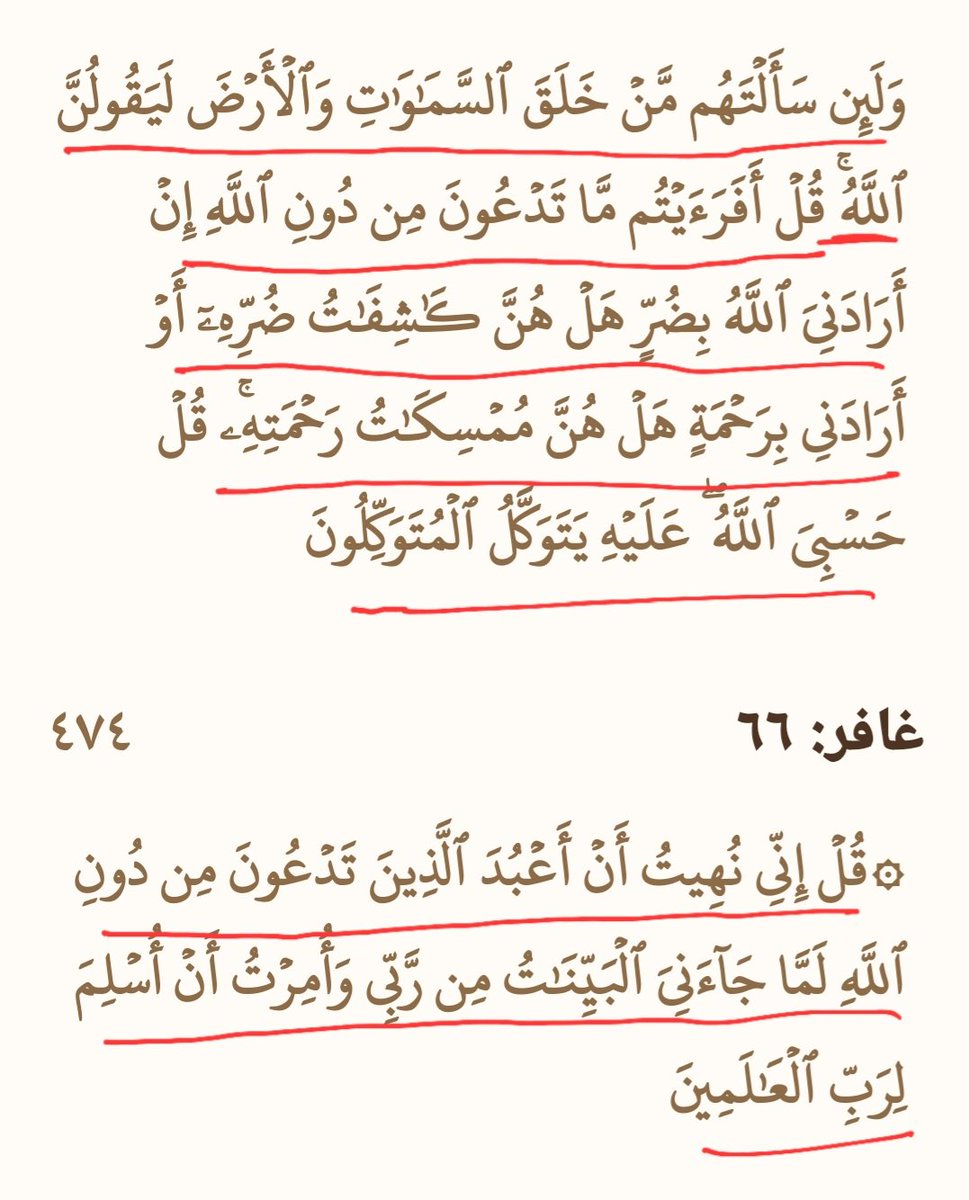 وَلَئِن سَأَلْتَهُم مَّنْ خَلَقَ ٱلسَّمَـٰوَٰتِ وَٱلْأَرْضَ لَيَقُولُنَّ
ٱللَّهُ ۚ قُلْ أَفَرَءَيْتُم مَّا تَدْعُونَ مِن دُونِ ٱللَّهِ إِنْ
أَرَادَنِىَ ٱللَّهُ بِضُرٍّ هَلْ هُنَّ كَـٰشِفَـٰتُ ضُرِّهِۦٓ أَوْ
أَرَادَنِى بِرَحْمَةٍ هَلْ هُنَّ مُمْسِكَـٰتُ رَحْمَتِهِۦ ۚ قُلْ
حَسْبِىَ ٱللَّهُ ۖ عَلَيْهِ يَتَوَكَّلُ ٱلْمُتَوَكِّلُونَ
غافر: ٦٦ ٤٧٤
۞ قُلْ إِنِّى نُهِيتُ أَنْ أَعْبُدَ ٱلَّذِينَ تَدْعُونَ مِن دُونِ
ٱللَّهِ لَمَّا جَآءَنِىَ ٱلْبَيِّنَـٰتُ مِن رَّبِّى وَأُمِرْتُ أَنْ أُسْلِمَ
لِرَبِّ ٱلْعَـٰلَمِينَ